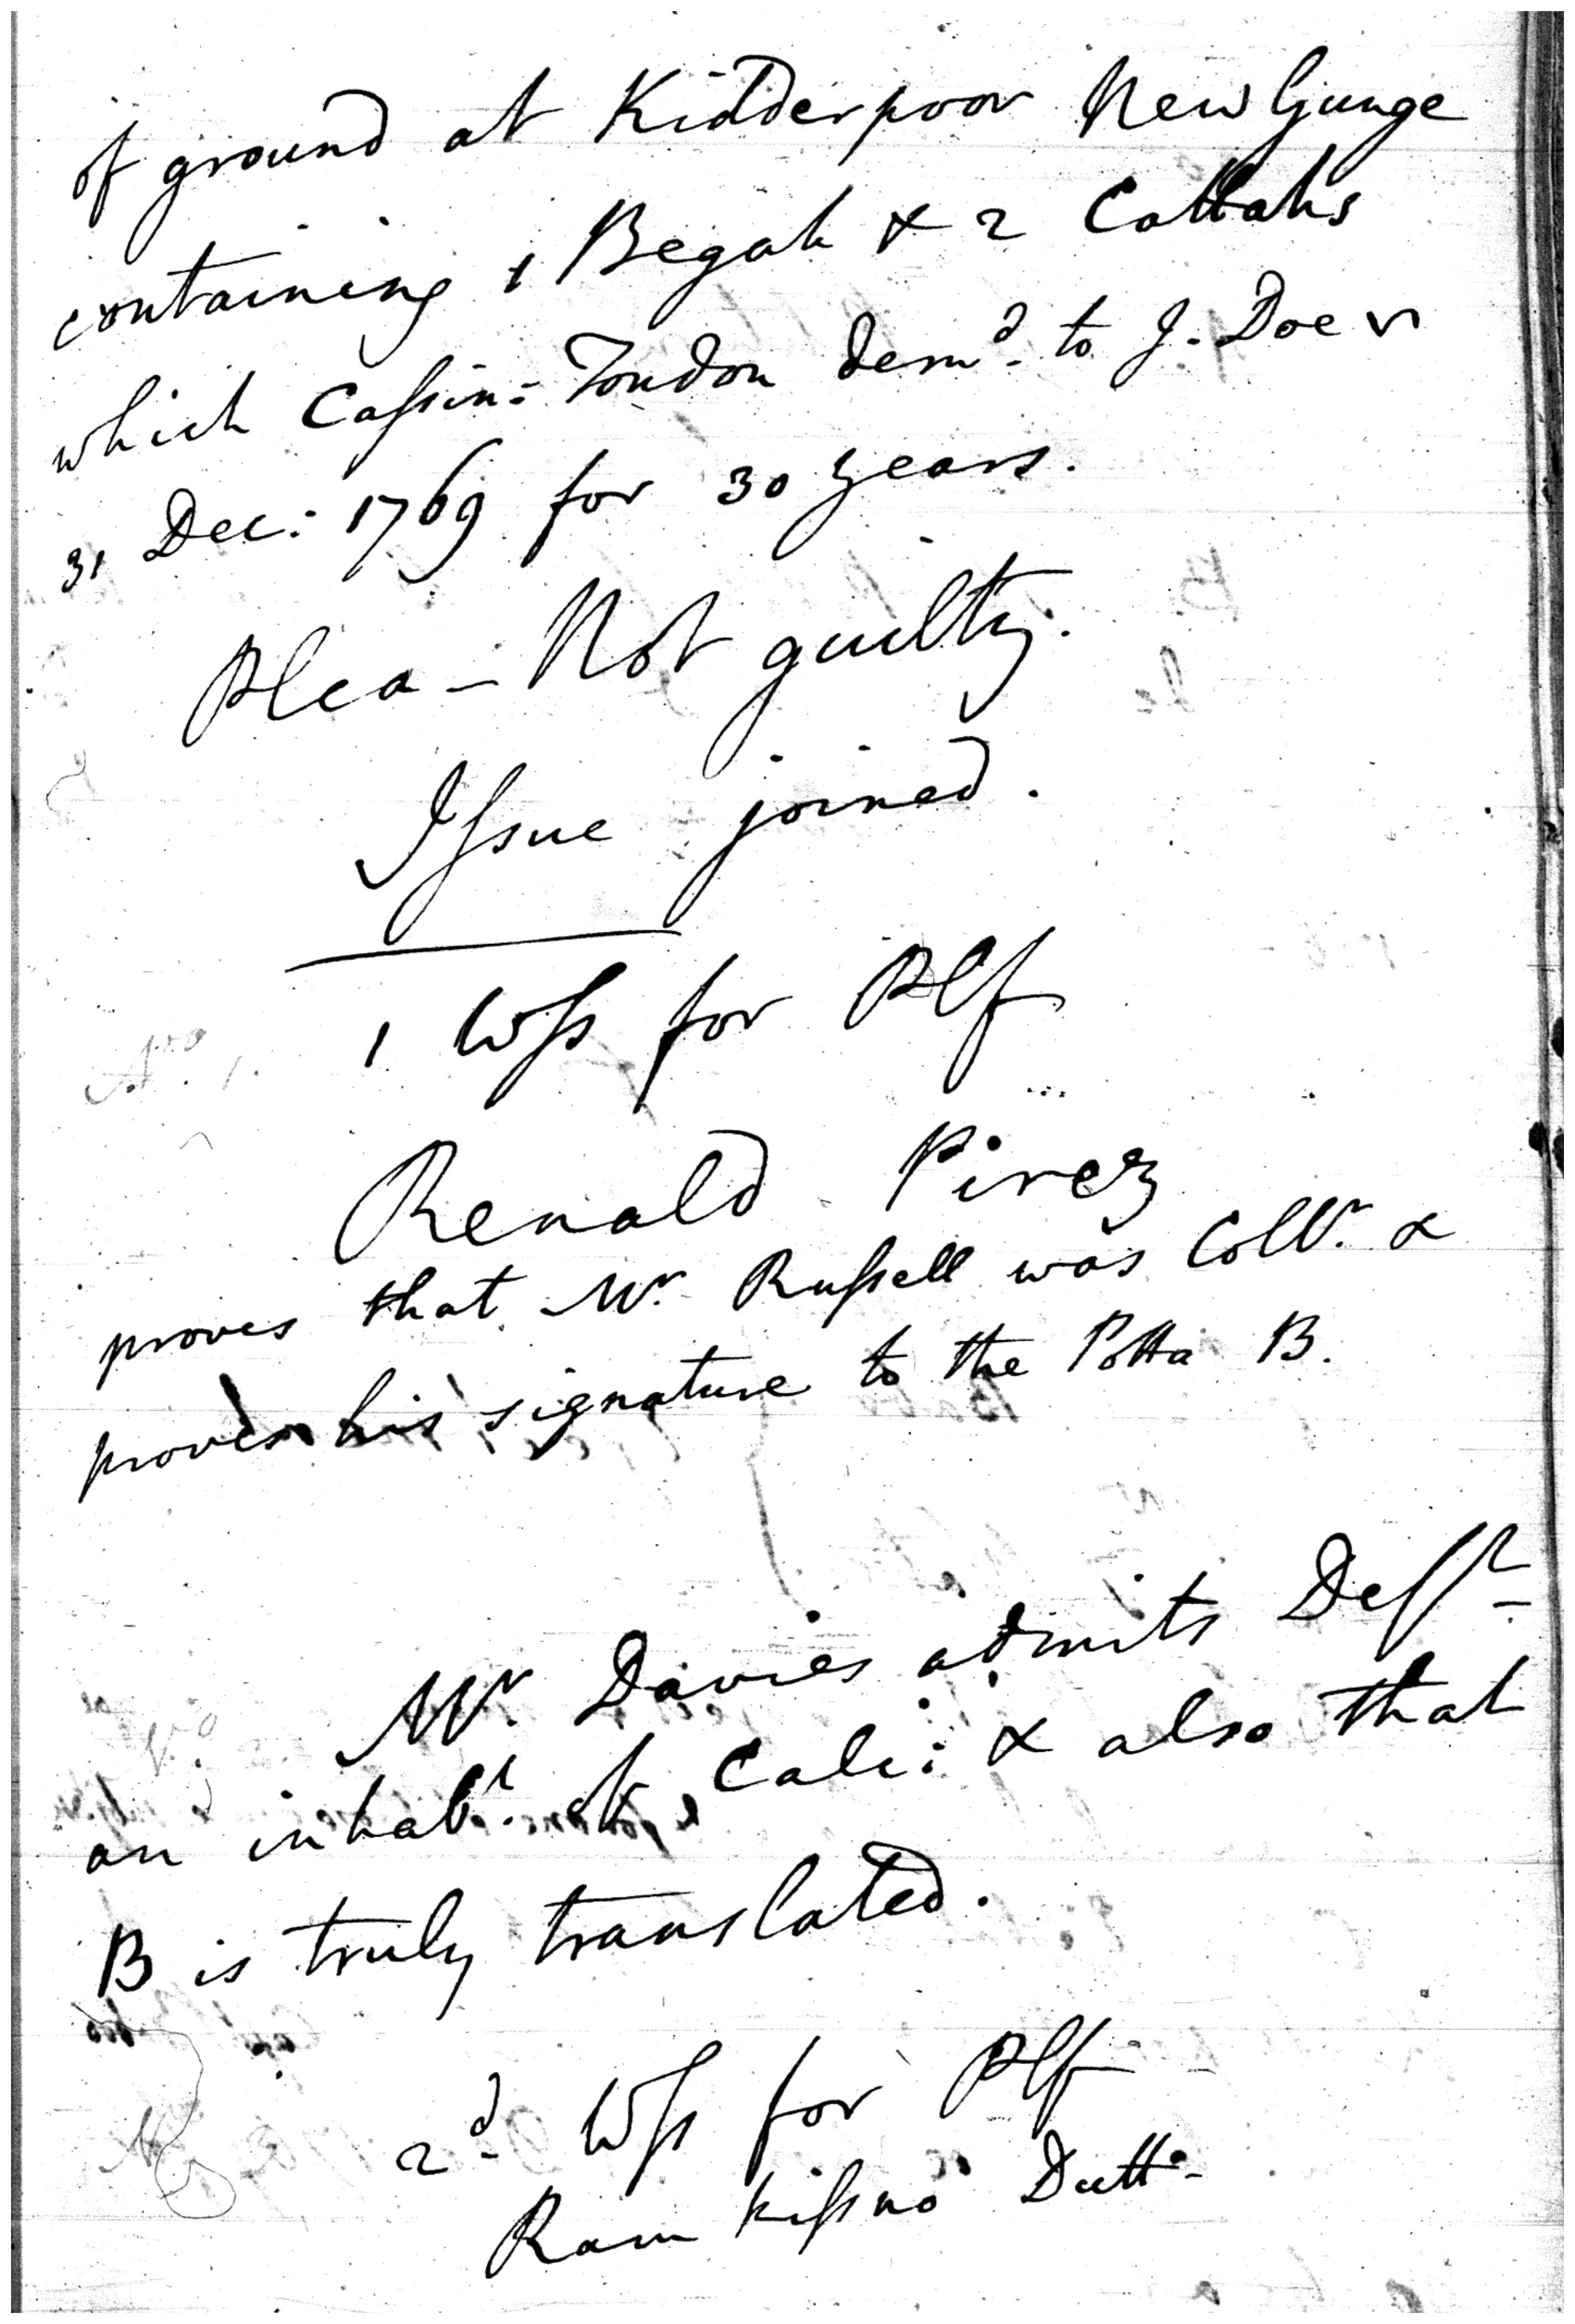 of ground at Kidderpoor New Gunge
containing 1 Begah & 2 Cottahs
which Cassin: Tondon dem.d to J. Doe
31 Dec: 1769 for 30 years.
Plea – Not guilty.
Issue joined.
1 Wss for Plf
Renald Pirez
proves that Mr. Russell was Collr. &
proves his signature to the Potta B.
Mr. Davies admits Deft
an inhabt. of Calc: & also that
B is truly translated.
2d. Wss for Plf
Ram Kissno Dutt